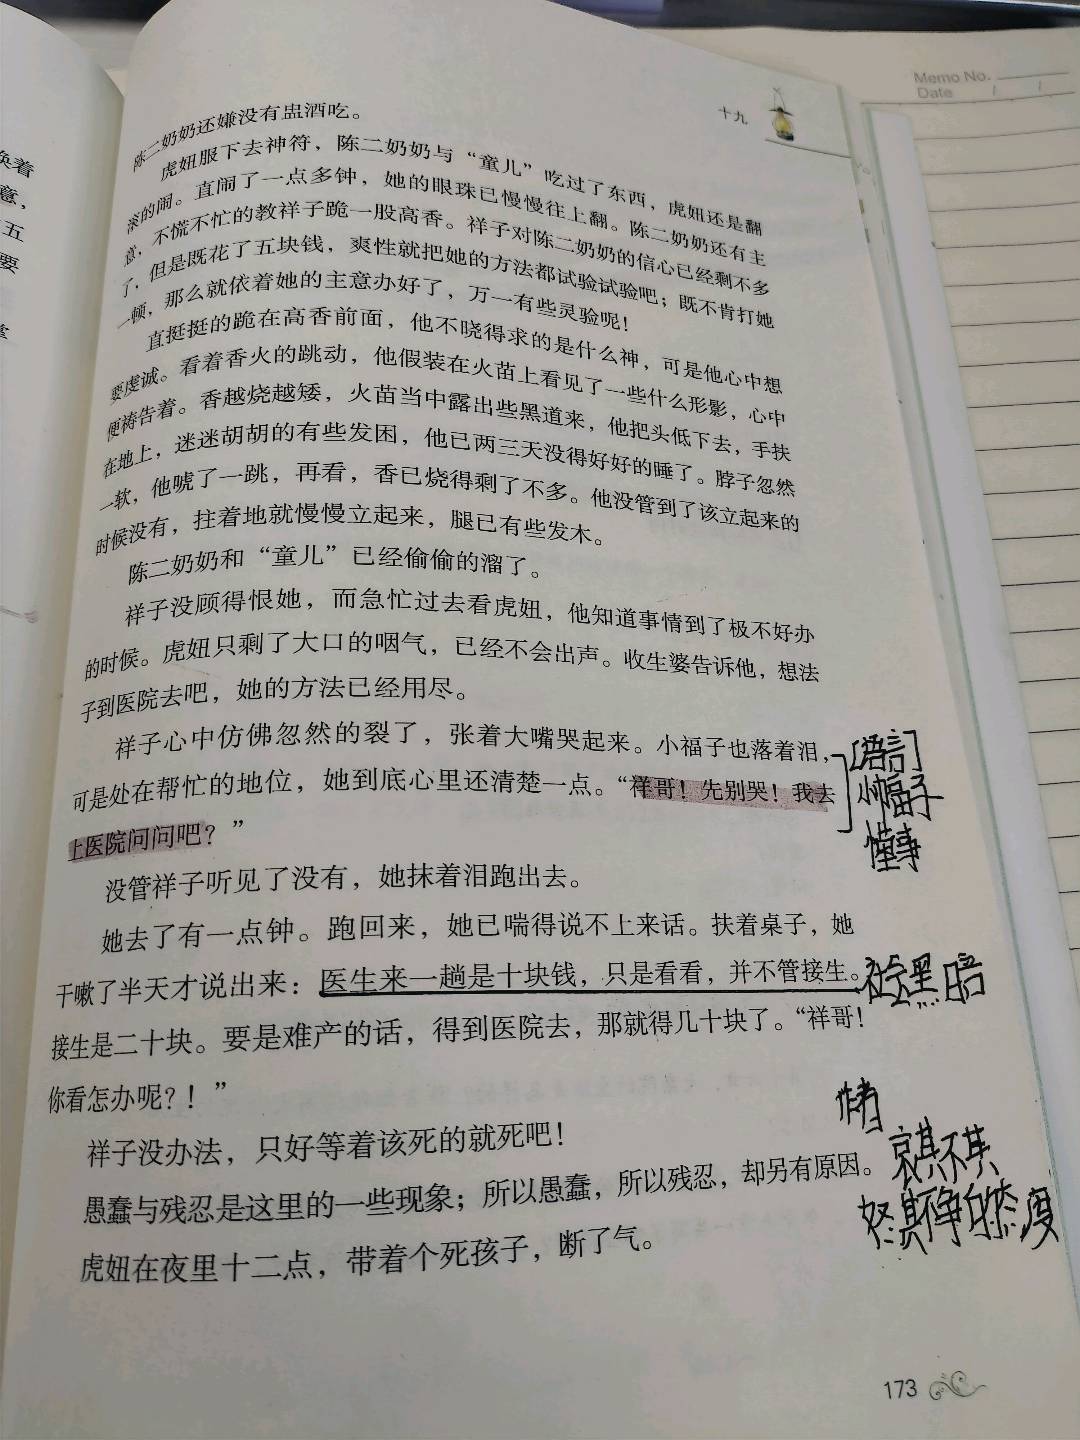 Memo No.
Date / /
十九
陈二奶奶还嫌没有盅酒吃。
虎妞服下去神符，陈二奶奶与“童儿”吃过了东西，虎妞还是翻
滚的闹。直闹了一点多钟，她的眼珠已慢慢往上翻。陈二奶奶还有主
意，不慌不忙的教祥子跪一股高香。祥子对陈二奶奶的信心已经剩不多
了，但是既花了五块钱，爽性就把她的方法都试验试验吧；既不肯打她
一顿，那么就依着她的主意办好了，万一有些灵验呢！
直挺挺的跪在高香前面，他不晓得求的是什么神，可是他心中想
要虔诚。看着香火的跳动，他假装在火苗上看见了一些什么形影，心中
便祷告着。香越烧越矮，火苗当中露出些黑道来，他把头低下去，手扶
在地上，迷迷胡胡的有些发困，他已两三天没得好好的睡了。脖子忽然
一软，他唬了一跳，再看，香已烧得剩了不多。他没管到了该立起来的
时候没有，拄着地就慢慢立起来，腿已有些发木。
陈二奶奶和“童儿”已经偷偷的溜了。
祥子没顾得恨她，而急忙过去看虎妞，他知道事情到了极不好办
的时候。虎妞只剩了大口的咽气，已经不会出声。收生婆告诉他，想法
子到医院去吧，她的方法已经用尽。
祥子心中仿佛忽然的裂了，张着大嘴哭起来。小福子也落着泪，
可是处在帮忙的地位，她到底心里还清楚一点。“祥哥！先别哭！我去
上医院问问吧？”
[语言]
小福子
懂事
没管祥子听见了没有，她抹着泪跑出去。
她去了有一点钟。跑回来，她已喘得说不上来话。扶着桌子，她
干嗽了半天才说出来：医生来一趟是十块钱，只是看看，并不管接生。
社会黑暗
接生是二十块。要是难产的话，得到医院去，那就得几十块了。“祥哥！
你看怎办呢？！”
祥子没办法，只好等着该死的就死吧！
愚蠢与残忍是这里的一些现象；所以愚蠢，所以残忍，却另有原因。
虎妞在夜里十二点，带着个死孩子，断了气。
作者
哀其不其
怒其不争的态度
173